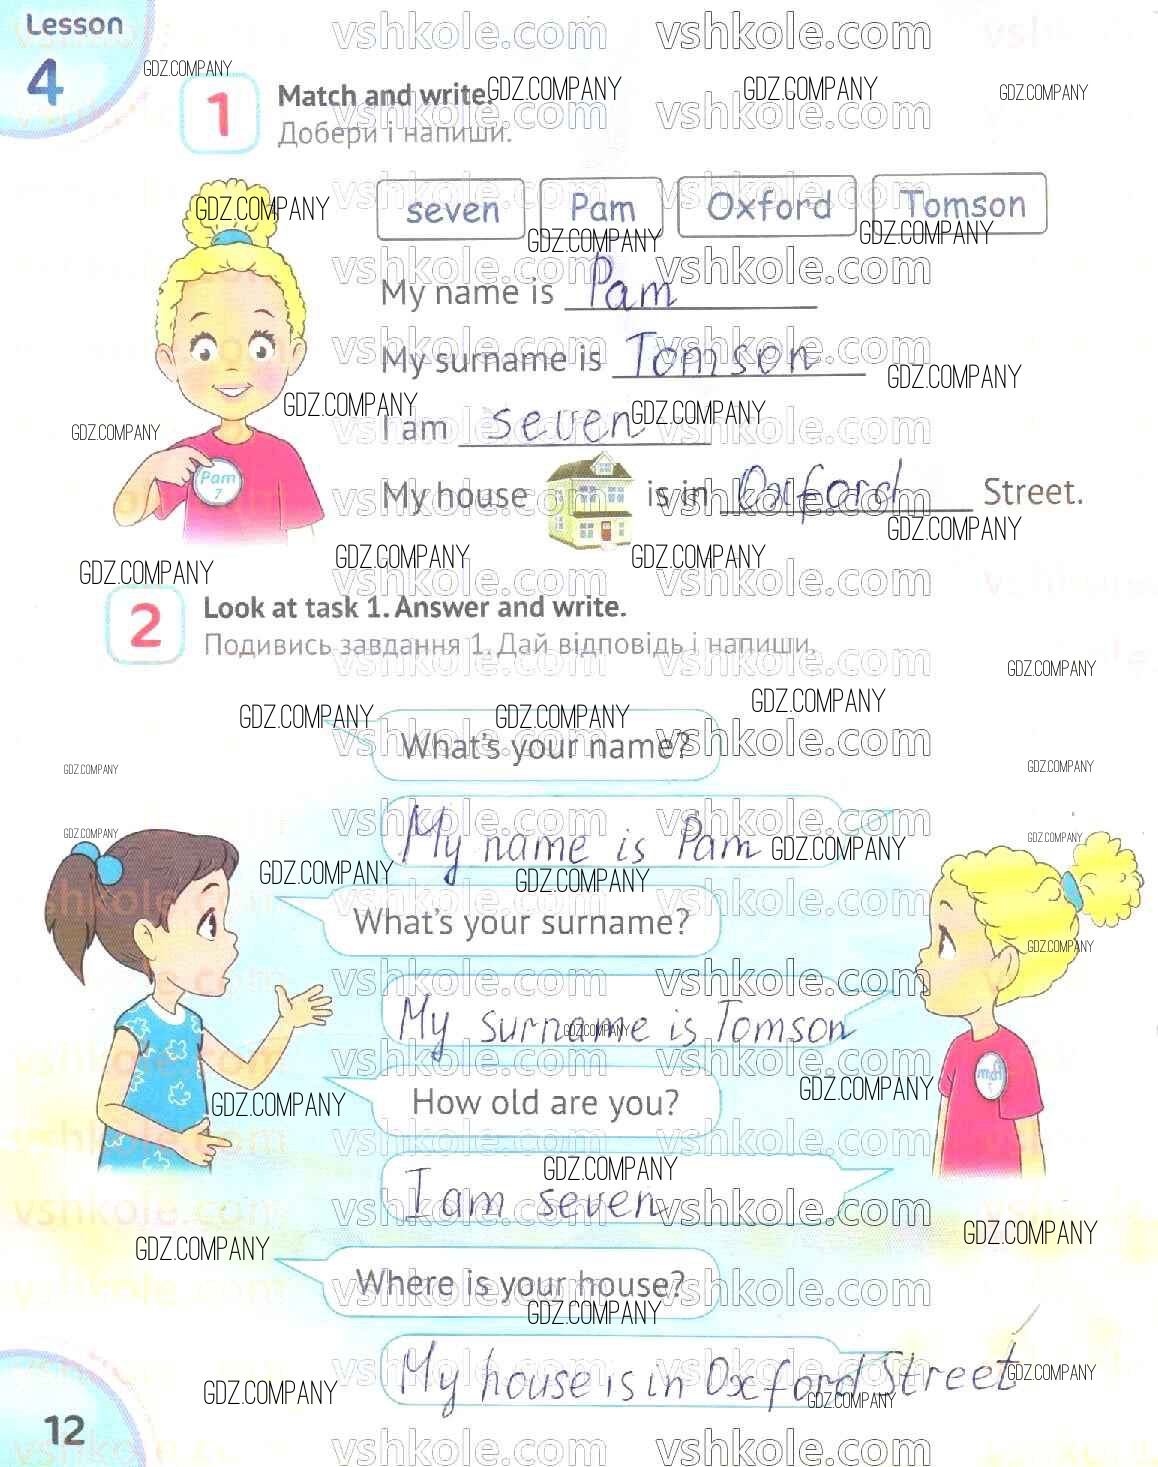 Lesson
4
1
Match and write.
Добери і напиши.
seven Pam Oxford Tomson
My name is Pam
My surname is Tomson
I am seven
My house is in Oxford Street.
Pam
7
2
Look at task 1. Answer and write.
Подивись завдання 1. Дай відповідь і напиши.
What's your name?
My name is Pam
What's your surname?
My surname is Tomson
How old are you?
I am seven
Where is your house?
My house is in Oxford Street
12
vshkole.com
GDZ.COMPANY